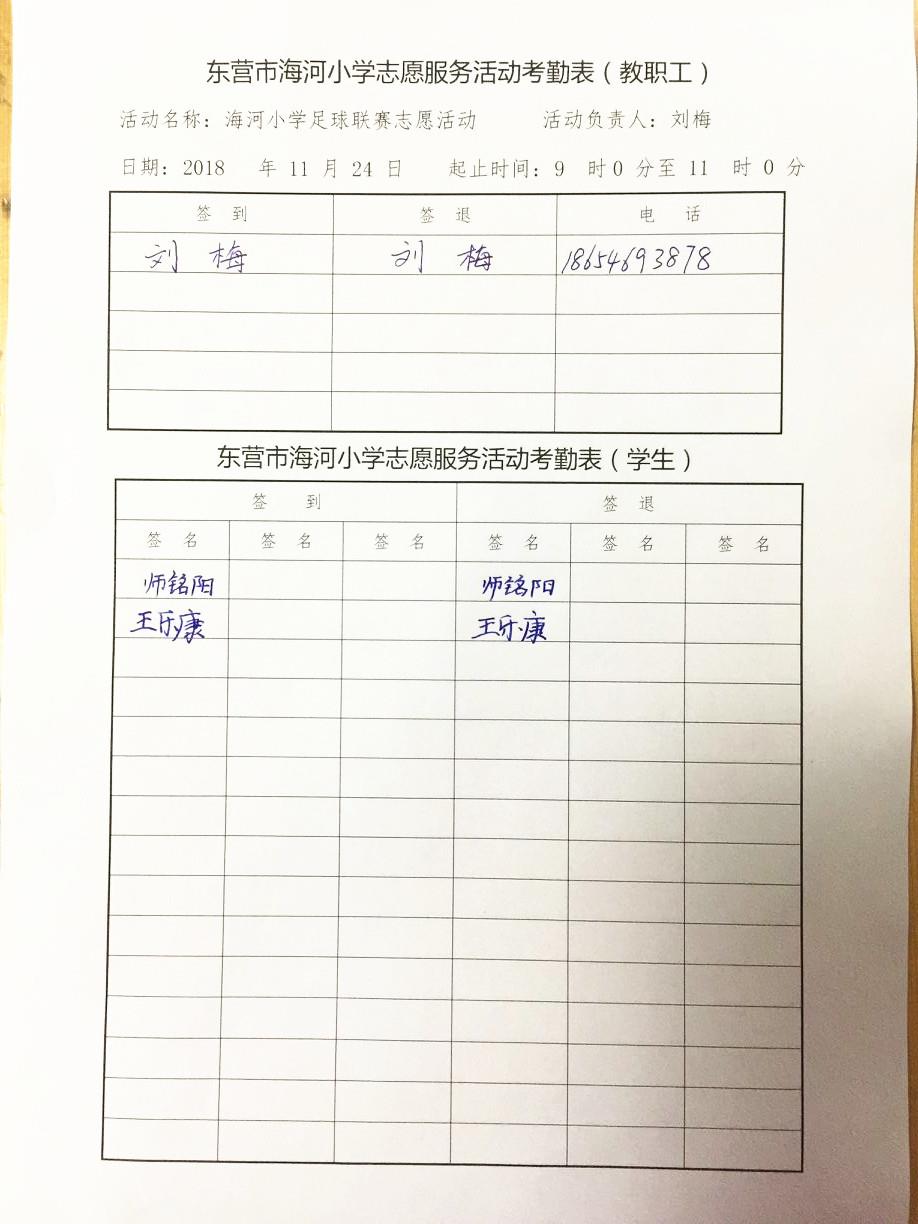 东营市海河小学志愿服务活动考勤表（教职工）
活动名称：海河小学足球联赛志愿活动 活动负责人：刘梅
日期：2018 年 11 月 24 日 起止时间：9 时0 分至 11 时 0 分
签 到 签 退 电 话
刘 梅 刘 梅 18654693878
东营市海河小学志愿服务活动考勤表（学生）
签 到 签 退
签 名 签 名 签 名 签 名 签 名 签 名
师铭阳 师铭阳
王乐康 王乐康